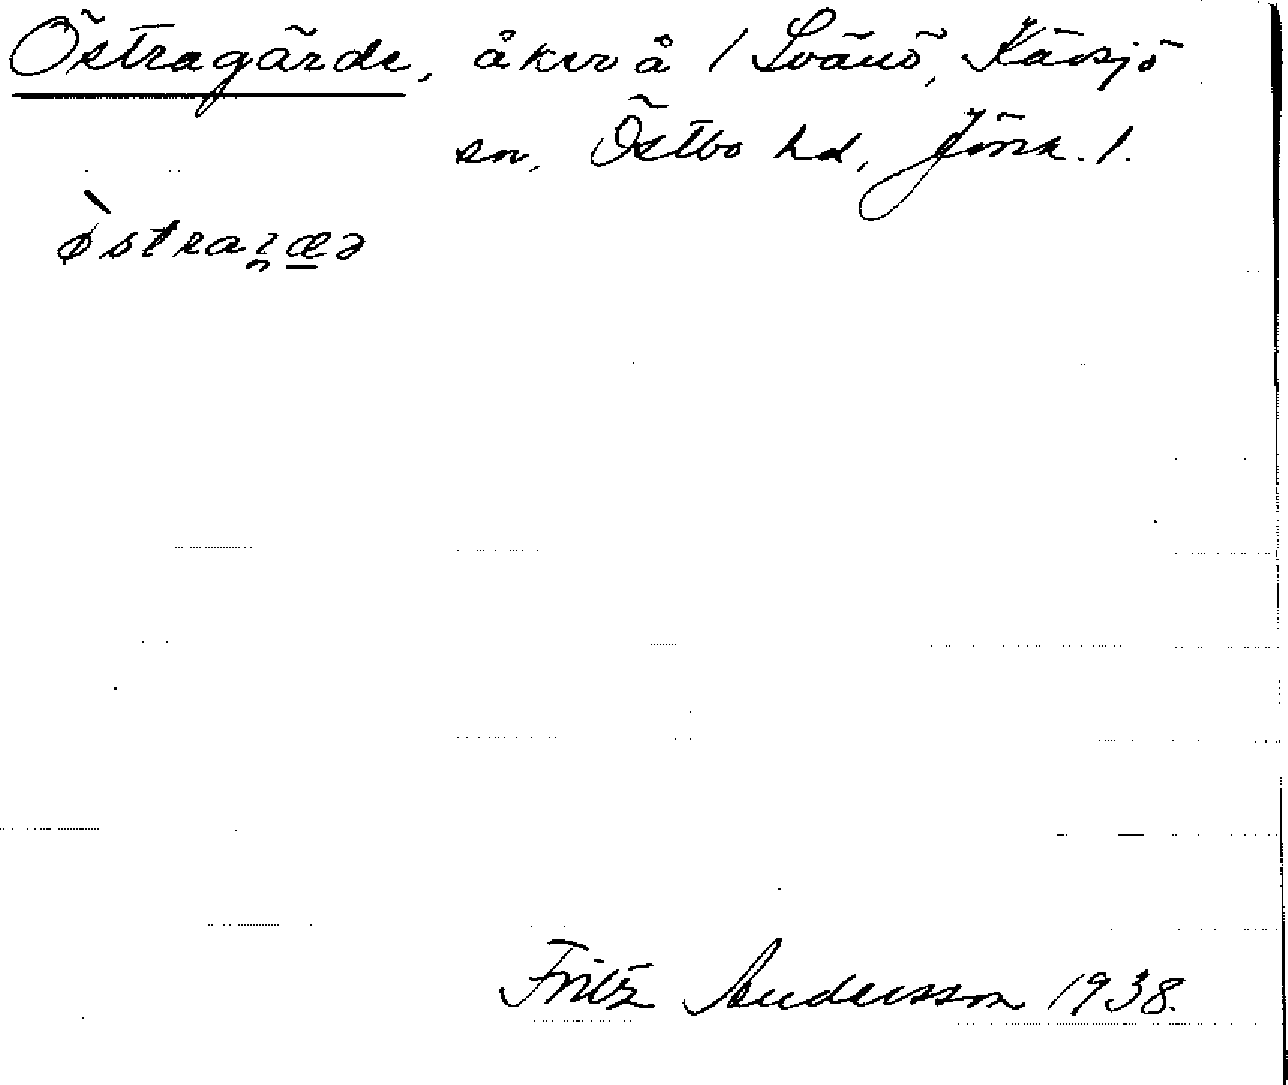 Östragärde, åker å 1 Svänö, Kävsjö
sn, Östbo hd, Jönk. l.
Fritz Andersson 1938.